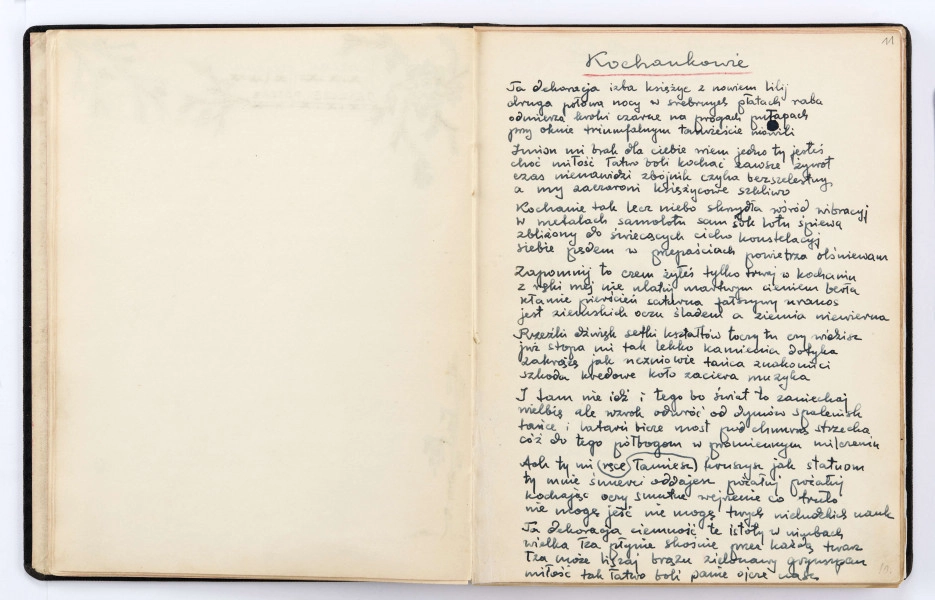 11
Kochankowie
Ta dekoracja izba księżyc z nowiem lilij
druga połowa nocy w srebrnych płatach raba
odmierza kroki czarne na progach pułapach
przy oknie triumfalnym tańczcie mówili
Imion mi brak dla ciebie wiem jedno ty jesteś
choć miłość łatwo boli kochać zawsze żywot
czas nienawidzi zbójnik czyha bezszelestny
a my zaczarowani księżycowe szkliwo
Kochanie tak lecz niebo skrzydła wśród wibracyj
w metalach samolotu sam śpiewa
zbliżony do świecących cicho konstelacyj
siebie pędem w przepaściach powietrza olśniewam
Zapomnij to czem żyłeś tylko trwaj w kochaniu
z ręki mej nie martwym cieniem berła
kłamie pierścień saturna fałszywy
jest ziemskich oczu śladem a ziemia niewierna
Rzeźki dźwięk setki kształtów toczy tu czy widzisz
już stopa mi tak lekko kamienia dotyka
zakreślę jak uczniowie tańca znakomici
szkoda kredowe koło zaciera muzyka
I tam nie idź i tego bo świat to zaniechaj
wielbię ale wzrok odwróć od dymów spalenisk
tańce i latarń bierz most pod chmurną strzechą
cóż do tego półbogom w promiennym milczeniu
Ach ty mi ręce łamiesz kruszysz jak statuom
ty mnie śmierci oddajesz pożałuj pożałuj
kochając oczy smutne wejrzenie co truło
nie mogę jeść nie mogę twych nieludzkich nauk
Ta dekoracja ciemność te istoty w nimbach
wielka łza płynie skośnie przez każdą twarz
łza może liszaj brązu zielonawy grynszpan
miłość tak łatwo boli panie ojcze nasz